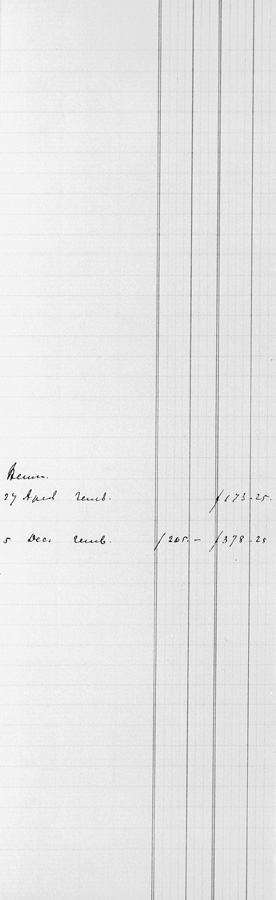 27 April remb. ƒ 173.25.
5 Dec. remb. ƒ 205.– ƒ 378.25